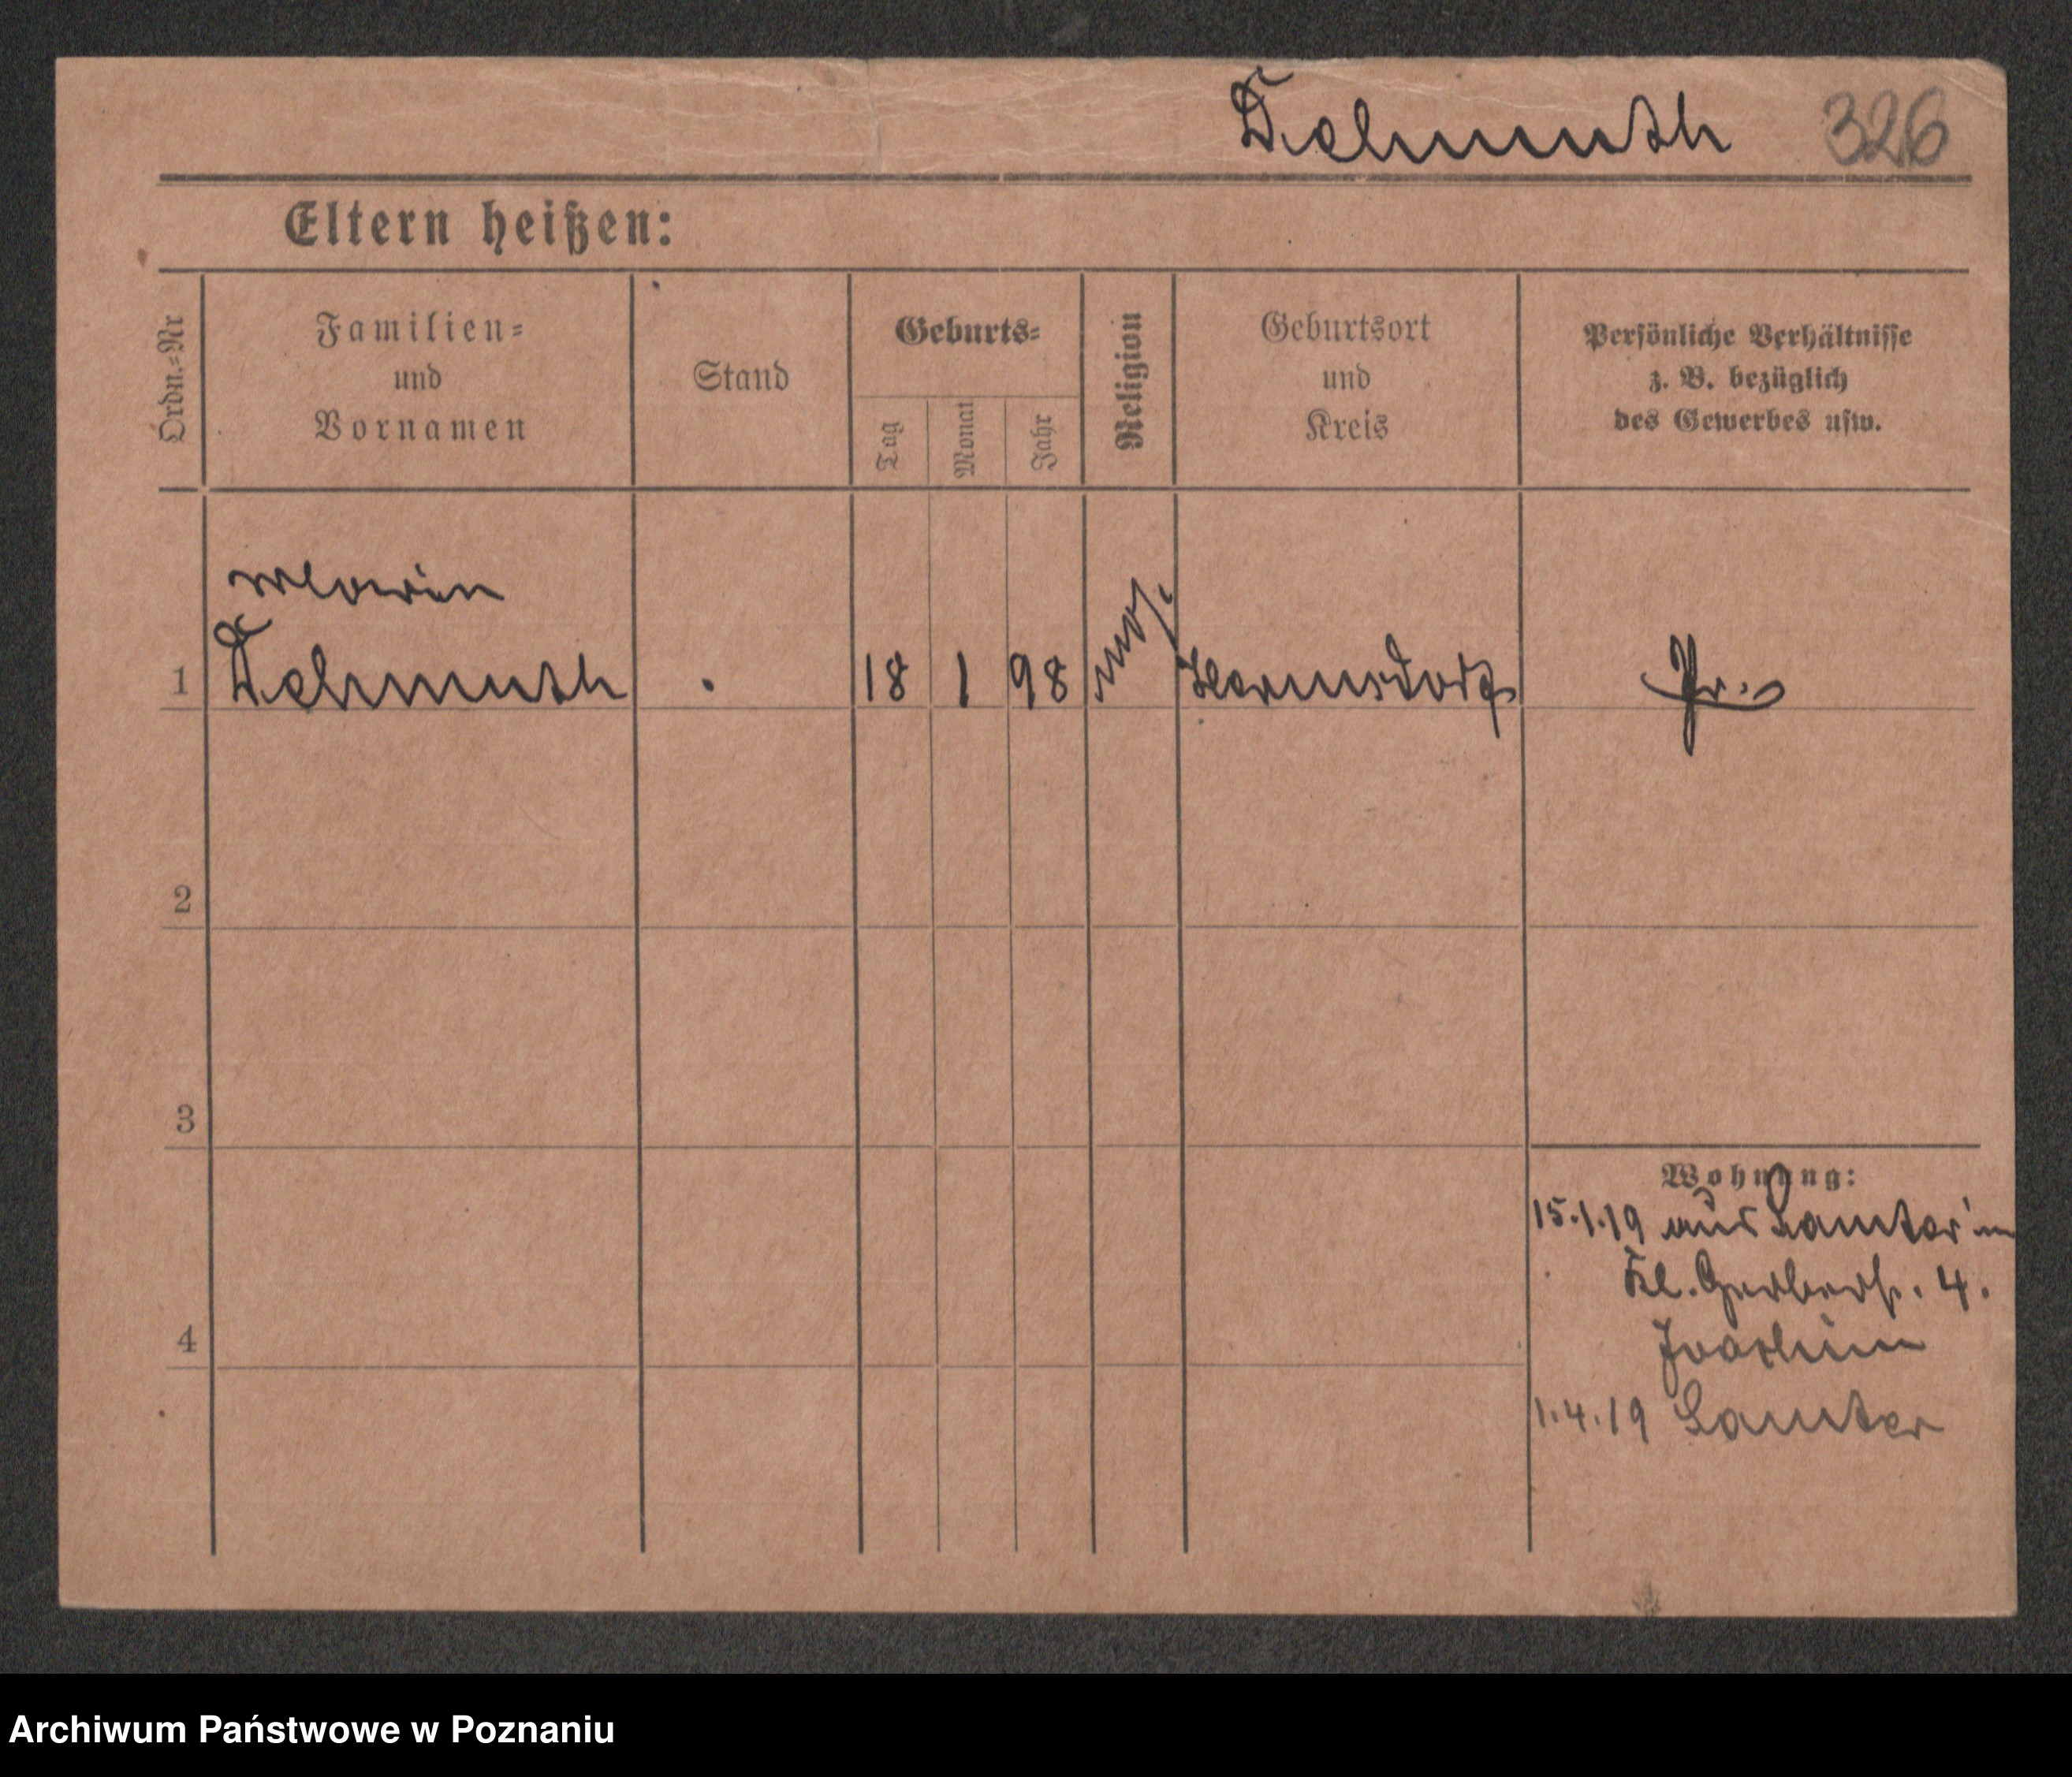 Dehmuth 326
Eltern heißen:
Ordn.-Nr
Familien-
und
Vornamen
Stand
Geburts-
Tag
Monat
Jahr
Religion
Geburtsort
und
Kreis
Persönliche Verhältnisse
z. B. bezüglich
des Gewerbes usw.
1 Dehmuth 18 1 98 mos. Hermsdorf Pr.
2
3
Wohnung:
15.1.19 aus Samter in
Kl. Gerberstr. 4.
4
Joachim
1.4.19 Samter
Archiwum Państwowe w Poznaniu